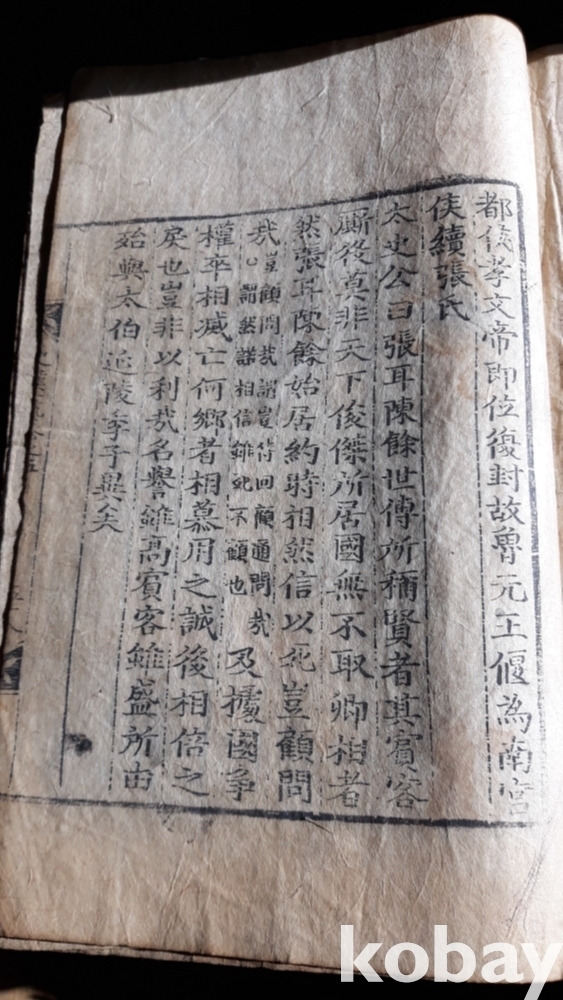 都侯孝文帝即位復封故魯元王偃為南宮
侯續張氏
太史公曰張耳陳餘世傳所稱賢者其賓客
廝役莫非天下俊傑所居國無不取卿相者
然張耳陳餘始居約時相然信以死豈顧問
哉豈顧問哉謂豈待回顧通問哉謂然諾相信雖死不顧也及據國爭
權卒相滅亡何鄉者相慕用之誠後相倍之
戾也豈非以利哉名譽雖高賓客雖盛所由
殆與太伯延陵季子異矣
kobay